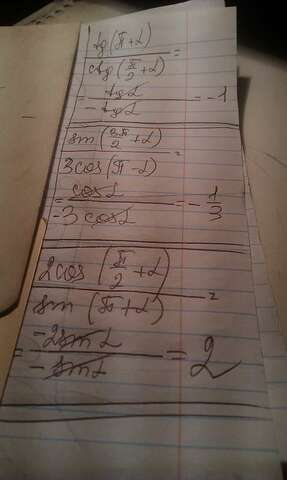 tg(π+α)/ctg(π/2+α) =
= tgα/-tgα = -1
sin(3π/2+α)/3cos(π-α) =
= cosα/-3cosα = -1/3
2cos(π/2+α)/sin(π+α) =
= -2sinα/-sinα = 2